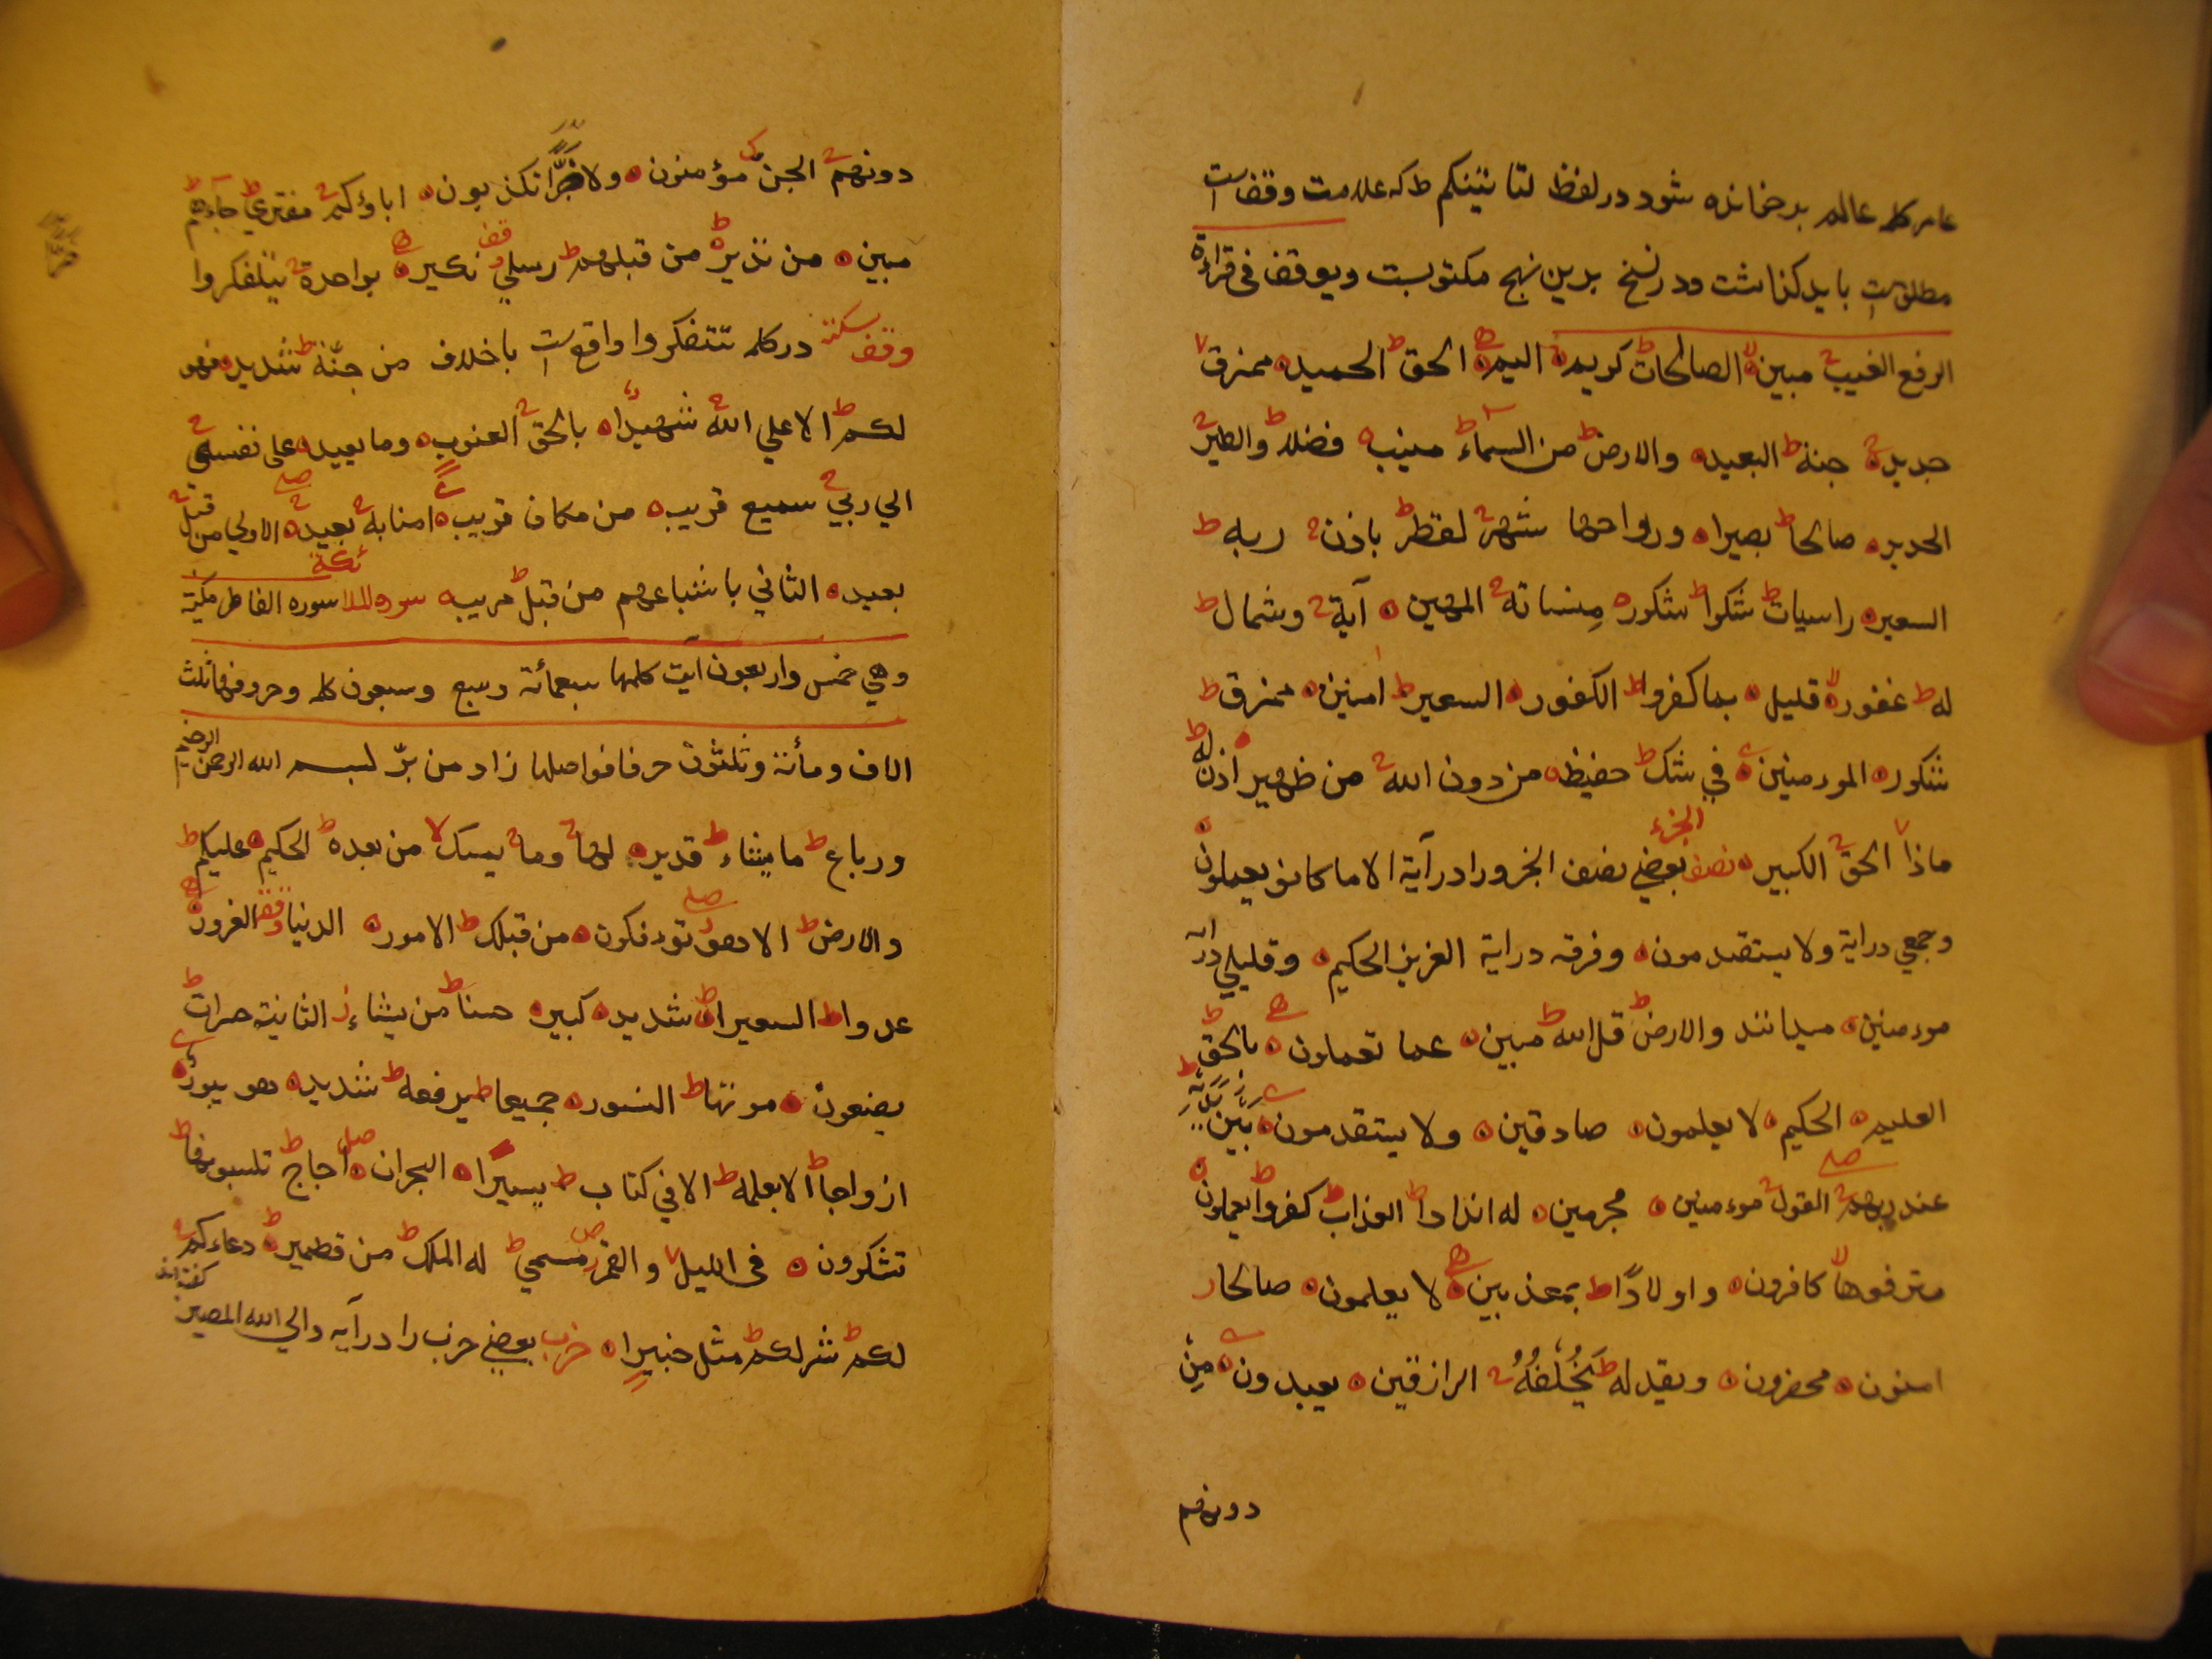 عامر كله عالم بر خوانده شود در لفظ لتاتينكم ط كه علامت وقف است
مطلق است بايد كذاشت ودر نسخ بدين نهج مكتوبست ويوقف فى قراءة
الرفع الغيب ج مبين ه لا الصالحات ط كريم ه اليم ه الحق ط الحميد ه ممزق لا
جديد ه ج جنة ط البعيد ه والارض ط من السماء ط منيب ه فضلا ط والطير ج
الحديد ه صالحا ط بصيرا ه ورواحها شهر ج لقطر ط باذن ج ربه ط
السعير ه راسيات ط شكرا ط شكور ه منساته ج المهين ه آية ج وشمال ط
له ط غفور ه قليل ه بما كفروا ط الكفور ه السعير ط امنين ه ممزق ط
شكور ه المؤمنين ه في شك ط حفيظ ه من دون الله ج من ظهير ه اذن له ط
ماذا لا الحق ج الكبير ه نصف الجزء بعضي نصف الجزو را در آية الا ما كانو يعملون ه
وجمعي در اية ولا يستقدمون ه وفرقه در اية العزيز الحكيم ه وقليلي در اية
مؤمنين ه ميدانند والارض ط قل الله ط مبين ه عما تعملون ه بالحق ط
العليم ه الحكيم ه لا يعلمون ه صادقين ه ولا يستقدمون ه بين يديه ط
عند ربهم ج القول ج مؤمنين ه مجرمين ه له اندادا ط العذاب ط كفروا ط يعملون ه
مترفوها لا كافرون ه واولادا ط بمعذبين ه لا يعلمون ه صالحا ز
امنون ه محضرون ه ويقدر له ط يخلفه ج الرازقين ه يعبدون ه من
دونهم
دونهم ج الجن ج مؤمنون ه ولا ضرا تكذبون ه اباؤكم ج مفترى ط جاءهم ط
مبين ه من نذير ه ط من قبلهم ط رسلي وقف نكير ه بواحدة ج تتفكروا
وقف سكته در كله تتفكروا واقع است باخلاف من جنة ط شديد ه فهو
لكم ط الا على الله ج شهيدا ه بالحق ج الغيوب ه وما يعيد ه على نفسي ج
الي ربي ج سميع قريب ه من مكان قريب ه امنا به ج بعيد ه الاولي من قبل ج
بعيد ه الثاني باشياعهم من قبل ط مريب ه سوره الملائكة سوره الفاطر مكية
وهي خمس واربعون آيت كلمها سبعمائة وسبع وسبعون كله وحروفها ثلث
الاف ومأئة وثلثون حرفا فواصلها زاد من بر لبسم الله الرحمن الرحيم
ورباع ط ما يشاء ط قدير ه لها ج وما يمسك لا من بعده ط الحكيم ه عليكم ط
والارض ط الا هو تؤفكون ه من قبلك ط الامور ه الدنيا وقف الغرور ه
عدوا ط السعير ه ط شديد ه كبير ه حسنا ط من يشاء ز الثانية حسرات ط
يصنعون ه موتها ط النشور ه جميعا ط يرفعه ط شديد ه هو يبور ه
ازواجا ط الا بعلمه ط الا في كتاب ط يسيرا ه البحران صل اجاج ط تلبسونها ط
تشكرون ه فى الليل لا والقمر مسمي ط له الملك ط من قطمير ه ط دعاءكم ج
لكم ط شرككم ط مثل خبير ه حزب بعضي حزب را در آيه والي الله المصير گفته اند